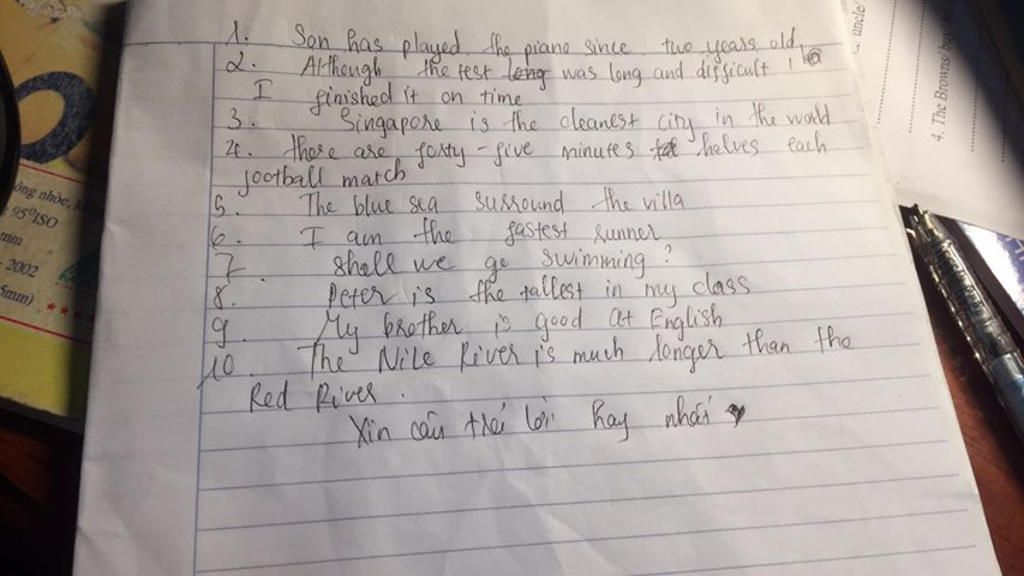 1. Son has played the piano since two years old,
2. Although the test long was long and difficult,
I finished it on time
3. Singapore is the cleanest city in the world
4. there are forty-five minutes halves each
football match
5. The blue sea surround the villa
6. I am the fastest runner
7. shall we go swimming?
8. Peter is the tallest in my class
9. My brother is good at English
10. The Nile River is much longer than the
Red River.
Xin câu trả lời hay nhất
4. The Browns
uncle
95°ISO
mm
2002
5mm) ★★★